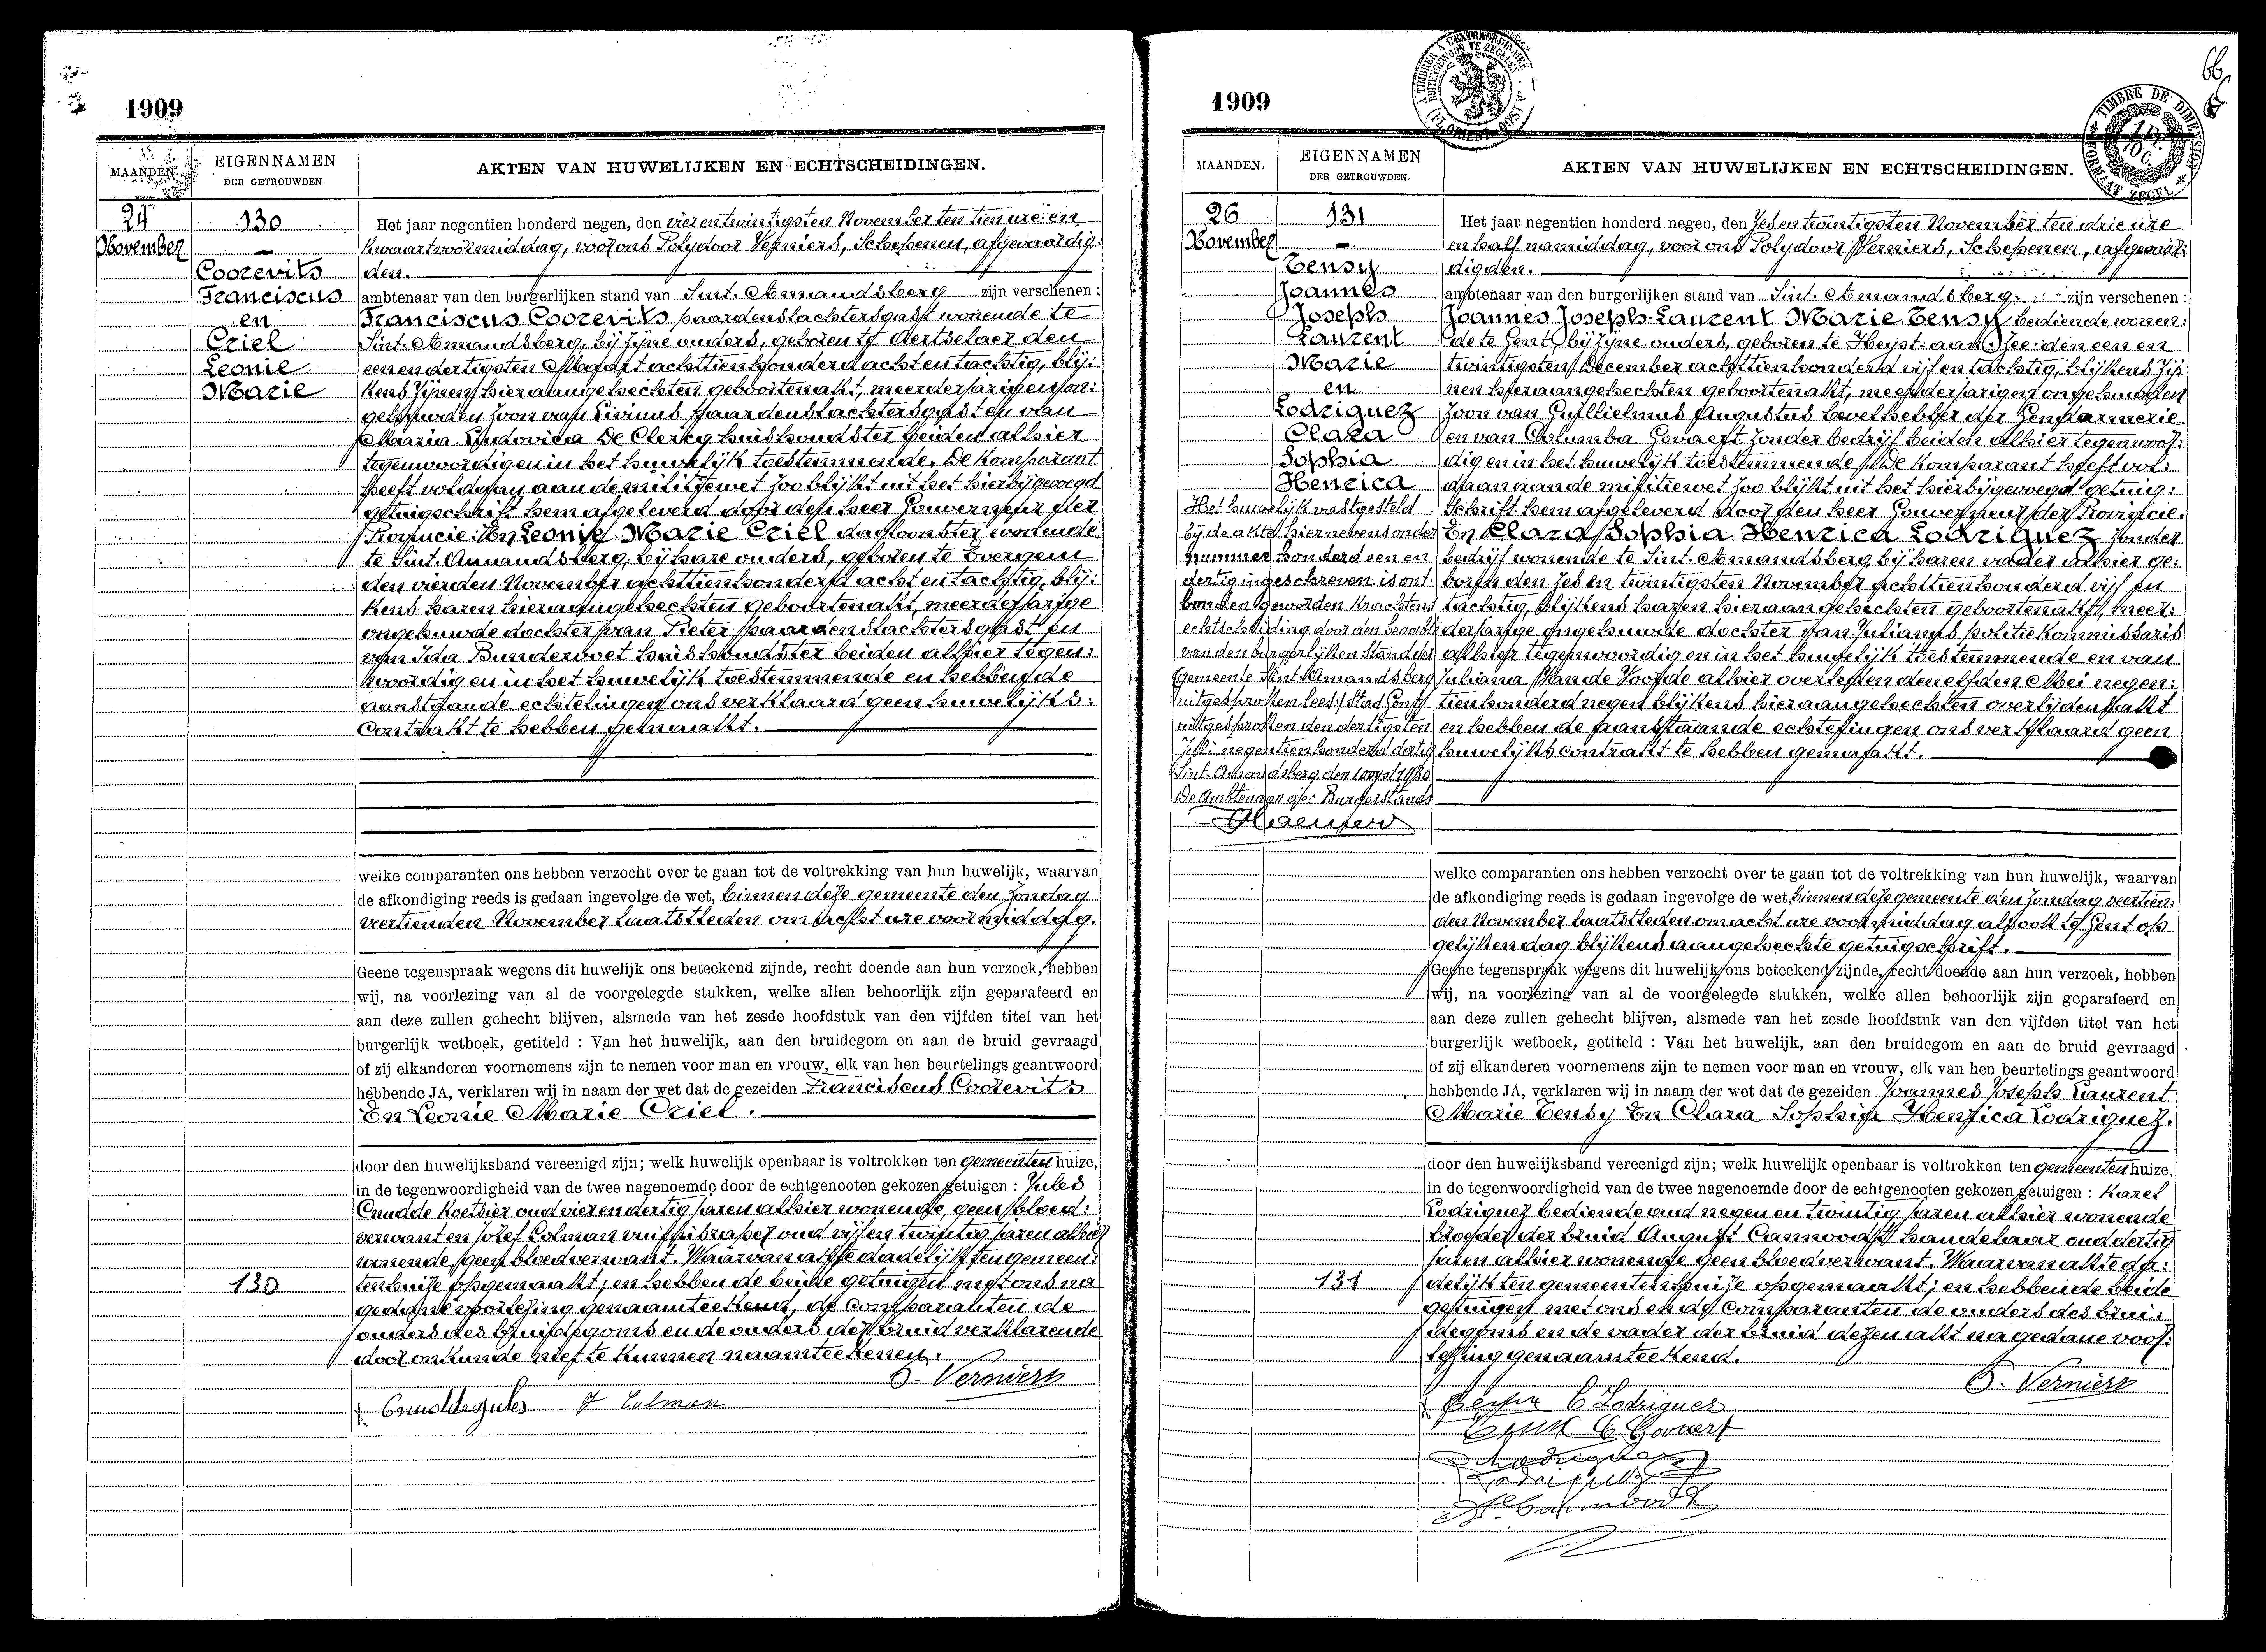 1909
MAANDEN.
EIGENNAMEN
DER GETROUWDEN.
AKTEN VAN HUWELIJKEN EN ECHTSCHEIDINGEN.
24
November
130
Coorevits
Franciscus
en
Criel
Leonie
Marie
Het jaar negentien honderd negen, den vier en twintigsten November ten tien ure en
kwaart voormiddag, voor ons Polydoor Verniers, Schepenen, afgevaardig:
den.
ambtenaar van den burgerlijken stand van Sint. Amandsberg zijn verschenen :
Franciscus Coorevits paardenslachtersgast wonende te
Sint. Amandsberg, bij zijne ouders, geboren te Aertselaer den
een en dertigsten Maart achttienhonderd acht en tachtig, blij:
kens zijnen hieraangehechten geboortenakt, meerderjarigen on:
gehuwden zoon van Livinus paardenslachtersgast en van
Maria Ludovica De Clercq huishoudster beiden alhier
tegenwoordig en in het huwelijk toestemmende. De komparant
heeft voldaan aan de militiewet zoo blijkt uit het hierbijgevoegd
getuigschrift hem afgeleverd door den heer Gouverneur der
Provincie. En Leonie Marie Criel dagloonster wonende
te Sint. Amandsberg, bij hare ouders, geboren te Evergem
den vierden November achttienhonderd acht en tachtig, blij:
kens haren hieraangehechten geboortenakt, meerderjarige
ongehuwde dochter van Pieter paardenslachtersgast en
van Ida Bundervoet huishoudster beiden alhier tegen:
woordig en in het huwelijk toestemmende en hebben de
aanstaande echtelingen ons verklaard geen huwelijks:
contrakt te hebben gemaakt.
welke comparanten ons hebben verzocht over te gaan tot de voltrekking van hun huwelijk, waarvan
de afkondiging reeds is gedaan ingevolge de wet, binnen deze gemeente den Zondag
veertienden November laatstleden om acht ure voormiddag.
Geene tegenspraak wegens dit huwelijk ons beteekend zijnde, recht doende aan hun verzoek, hebben
wij, na voorlezing van al de voorgelegde stukken, welke allen behoorlijk zijn geparafeerd en
aan deze zullen gehecht blijven, alsmede van het zesde hoofdstuk van den vijfden titel van het
burgerlijk wetboek, getiteld : Van het huwelijk, aan den bruidegom en aan de bruid gevraagd
of zij elkanderen voornemens zijn te nemen voor man en vrouw, elk van hen beurtelings geantwoord
hebbende JA, verklaren wij in naam der wet dat de gezeiden Franciscus Coorevits
En Leonie Marie Criel.
door den huwelijksband vereenigd zijn; welk huwelijk openbaar is voltrokken ten gemeenten huize,
in de tegenwoordigheid van de twee nagenoemde door de echtgenooten gekozen getuigen : Jules
Cnudde koetsier oud vier en dertig jaren alhier wonende, geen bloed:
verwant en Jozef Colman oud vijf en twintig jaren alhier
wonende, geen bloedverwant. Waarvan akte dadelijk ten gemeen:
130
tenhuize opgemaakt; en hebben de beide getuigen met ons na
gedane voorlezing genaamteekend, de comparanten de
ouders des bruidegoms en de ouders der bruid verklarende
door onkunde niet te kunnen naamteekenen.
P. Verniers
Cnudde Jules J Colman
66
1909
A TIMBRER A L'EXTRAORDINAIRE
BUITENGEWOON TE ZEGELEN
TIMBRE DE DIMENSION
FORMAAT ZEGEL
MAANDEN.
EIGENNAMEN
DER GETROUWDEN.
AKTEN VAN HUWELIJKEN EN ECHTSCHEIDINGEN.
26
November
131
Tensy
Joannes
Joseph
Laurent
Marie
en
Lodriguez
Clara
Sophia
Henrica
Het huwelijk vastgesteld
bij de akte hiernevens onder
nummer honderd een en
dertig ingeschreven is ont:
bonden geworden krachtens
echtscheiding door den beambte
van den burgerlijken stand der
gemeente Sint Amandsberg
uitgesproken (lees: Stad Gent)
uitgesproken den dertigsten
Juli negentienhonderd dertig
Sint. Amandsberg, den 1 oogst 1930
De Ambtenaar v/d Burgerstand
Het jaar negentien honderd negen, den Zes en twintigsten November ten drie ure
en half namiddag, voor ons Polydoor Verniers, Schepenen, afgevaar:
digden.
ambtenaar van den burgerlijken stand van Sint. Amandsberg. zijn verschenen :
Joannes Joseph Laurent Marie Tensy bediende wonen:
de te Gent, bij zijne ouders, geboren te Heyst-aan-Zee den een en
twintigsten December achttienhonderd vijf en tachtig, blijkens zij:
nen hieraangehechten geboortenakt, meerderjarigen ongehuwden
zoon van Guillielmus Augustus bevelhebber der Gendarmerie
en van Columba Govaert zonder bedrijf beiden alhier tegenwoor:
dig en in het huwelijk toestemmende. De komparant heeft vol:
daan aan de militiewet zoo blijkt uit het hierbijgevoegd getuig:
schrift hem afgeleverd door den heer Gouverneur der Provincie.
En Clara Sophia Henrica Lodriguez zonder
bedrijf wonende te Sint. Amandsberg, bij haren vader alhier ge:
boren den zes en twintigsten November achttienhonderd vijf en
tachtig, blijkens haren hieraangehechten geboortenakt, meer:
derjarige ongehuwde dochter van Julianus politiekommissaris
alhier tegenwoordig en in het huwelijk toestemmende en van
Juliana Van de Voorde alhier overleden den elfden Mei negen:
tienhonderd negen blijkens hieraangehechten overlijdensakt
en hebben de aanstaande echtelingen ons verklaard geen
huwelijkscontrakt te hebben gemaakt.
welke comparanten ons hebben verzocht over te gaan tot de voltrekking van hun huwelijk, waarvan
de afkondiging reeds is gedaan ingevolge de wet, binnen deze gemeente den Zondag veertien:
den November laatstleden om acht ure voormiddag alsook te Gent op
gelijken dag blijkens aangehechte getuigschrift.
Geene tegenspraak wegens dit huwelijk ons beteekend zijnde, recht doende aan hun verzoek, hebben
wij, na voorlezing van al de voorgelegde stukken, welke allen behoorlijk zijn geparafeerd en
aan deze zullen gehecht blijven, alsmede van het zesde hoofdstuk van den vijfden titel van het
burgerlijk wetboek, getiteld : Van het huwelijk, aan den bruidegom en aan de bruid gevraagd
of zij elkanderen voornemens zijn te nemen voor man en vrouw, elk van hen beurtelings geantwoord
hebbende JA, verklaren wij in naam der wet dat de gezeiden Joannes Joseph Laurent
Marie Tensy En Clara Sophia Henrica Lodriguez.
door den huwelijksband vereenigd zijn; welk huwelijk openbaar is voltrokken ten gemeenten huize,
in de tegenwoordigheid van de twee nagenoemde door de echtgenooten gekozen getuigen : Karel
Lodriguez bediende oud negen en twintig jaren alhier wonende
broeder der bruid August Cannoodt handelaar oud dertig
jaren alhier wonende geen bloedverwant. Waarvan akte da:
131
delijk ten gemeentenhuize opgemaakt; en hebben de beide
getuigen met ons en de comparanten de ouders des brui:
degoms en de vader der bruid dezen akt na gedane voor:
lezing genaamteekend.
P. Verniers
C Lodriguez
C Govaert
Lodriguez